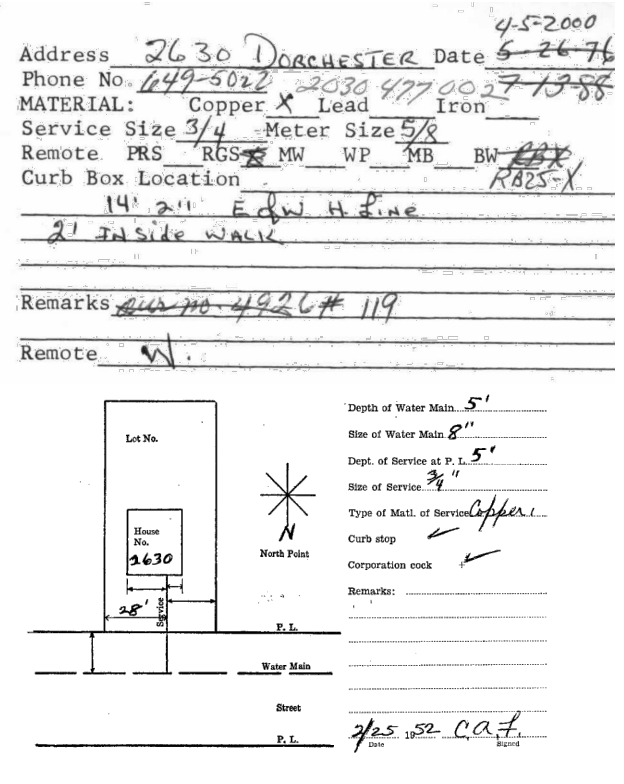 4-5-2000
Address 2630 DORCHESTER Date 5-26-76
Phone No. 649-5022 2030 477 002 7-13-88
MATERIAL: Copper X Lead Iron
Service Size 3/4 Meter Size 5/8
Remote PRS RGS X MW WP MB BW RBX
Curb Box Location RB25-X
14' 2" E of W H. Line
2' INSide WALK
Remarks our no. 4926# 119
Remote W.
Lot No.
House
No.
2630
28'
Service
N
North Point
P. L.
Water Main
Street
P. L.
Depth of Water Main 5'
Size of Water Main 8"
Dept. of Service at P. L. 5'
Size of Service 3/4"
Type of Matl. of Service Copper
Curb stop ✓
Corporation cock ✓
Remarks:
2/25 1952 C.A.F.
Date Signed